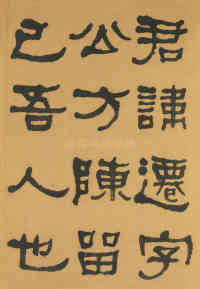 君諱遷字
公方陳留
已吾人也